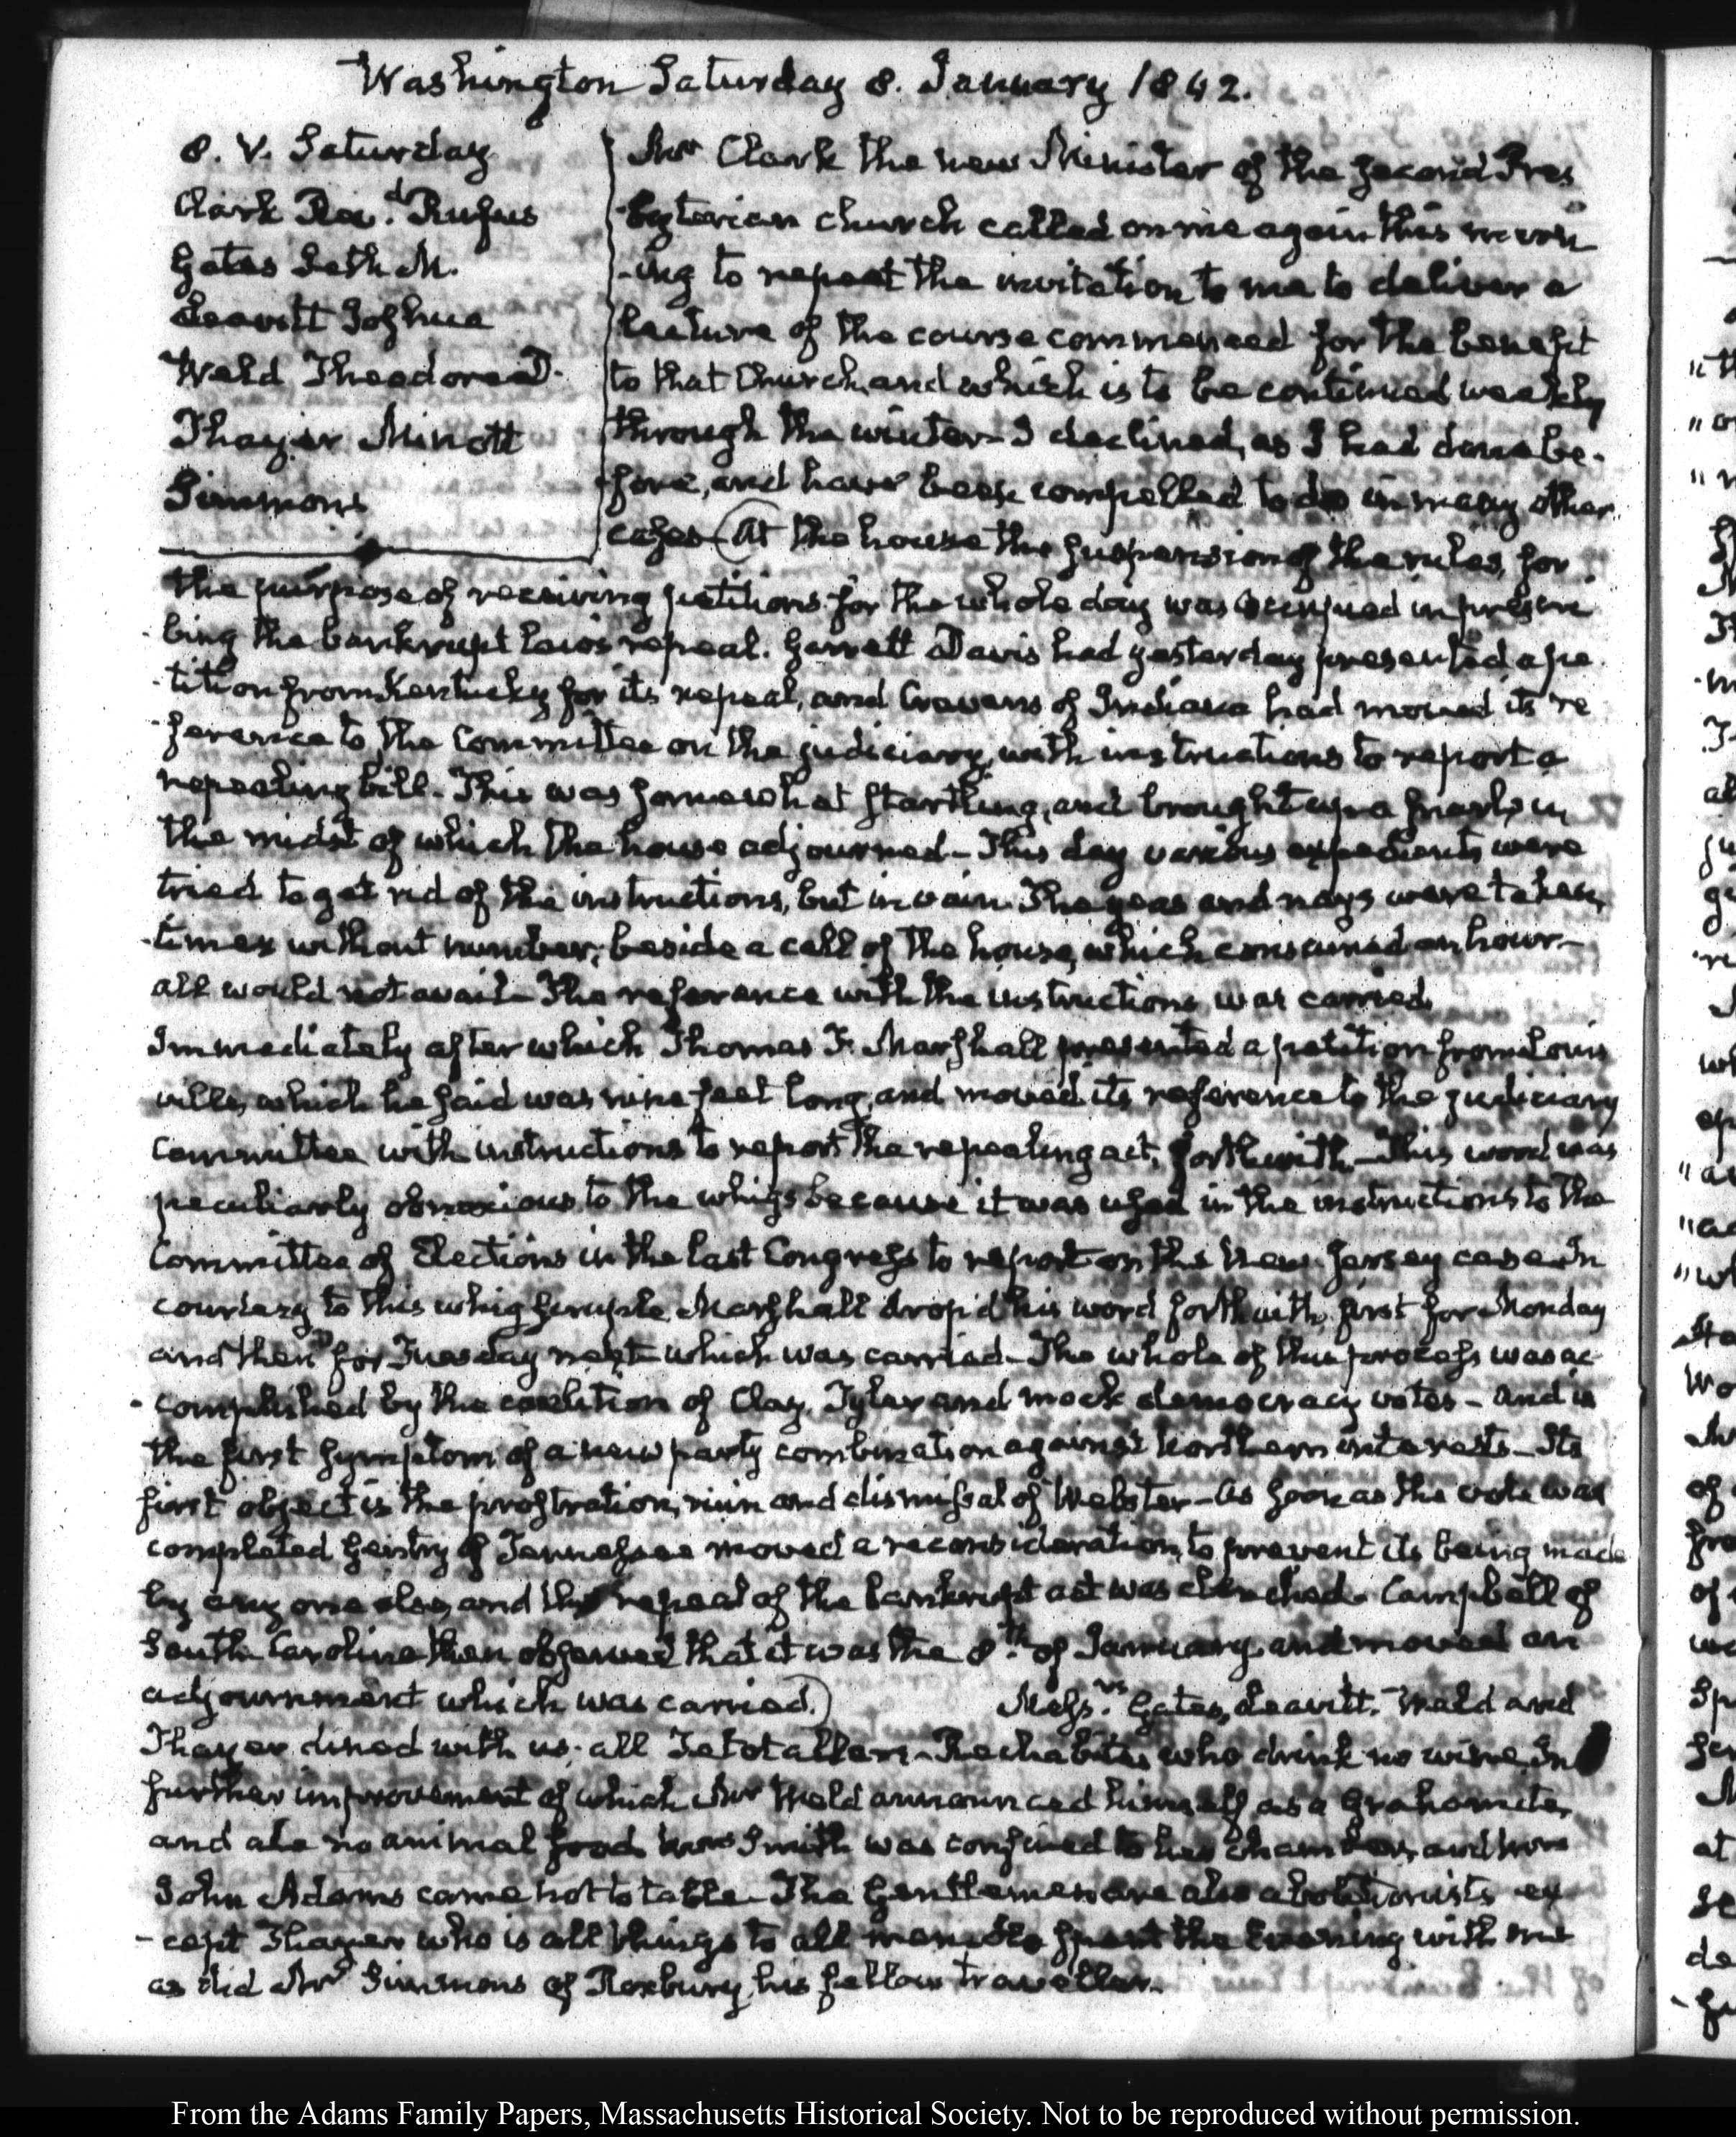 Washington Saturday 8. January 1842.
8. V. Saturday
Clark Rev.d Rufus
Gates Seth M.
Leavitt Joshua
Weld Theodore D.
Thayer Minott
Simmons
Mr Clark the new Minister of the second Pres
-byterian church called on me again this morn
-ing to repeat the invitation to me to deliver a
lecture of the course commenced for the benefit
to that Church, and which is to be continued weekly
through the winter- I declined, as I had done be-
fore, and have been compelled to do in many other
cases- (At the house the suspension of the rules, for
the purpose of receiving petitions for the whole day was occupied in
-bing the bankrupt laws repeal. Garrett Davis had yesterday presented a pe
-tition from Kentucky for its repeal, and Cravens of Indiana had moved its re
-ference to the Committee on the judiciary, with instructions to report a
repealing bill- This was somewhat startling, and brought up a snarl, in
the midst of which the house adjourned- This day various expedients were
tried to get rid of the instructions, but in vain. The yeas and nays were taken,
times without number; beside a call of the house, which consumed an hour-
all would not avail- The reference with the instructions was carried.
Immediately after which Thomas F. Marshall presented a petition from Louis
ville, which he said was nine feet long, and moved its reference to the judiciary
committee with instructions to report the repealing act, forthwith- This word was
peculiarly obnoxious to the whigs because it was used in the instructions to the
Committee of Elections in the last Congress to report on the New-Jersey case- In
courtesy to this whig scruple, Marshall drop'd his word forthwith, first for Monday
and then for Tuesday next- which was carried- The whole of this process was ac
-complished by the coalition of Clay, Tyler and mock democracy votes- and is
the first symptom of a new party combination against Northern interests- Its
first object is the prostration, ruin and dismissal of Webster- As soon as the vote was
completed Gentry of Tennessee moved a reconsideration, to prevent its being made
by any one else, and the repeal of the bankrupt act was clenched- Campbell of
South Carolina then observed that it was the 8th of January, and moved an
adjournment which was carried.) Messrs. Gates, Leavitt, Weld and
Thayer dined with us; all Tetotallers- Rechabites who drink no wine. In
further improvement of which Mr Weld announced himself as a Grahamite,
and ate no animal food. Mrs Smith was confined to her chamber, and Mrs
John Adams came not to table- The Gentlemen are also abolitionists ex
-cept Thayer who is all things to all men- He spent the Evening with me
as did Mr Simmons of Roxbury, his fellow traveller.
From the Adams Family Papers, Massachusetts Historical Society. Not to be reproduced without permission.